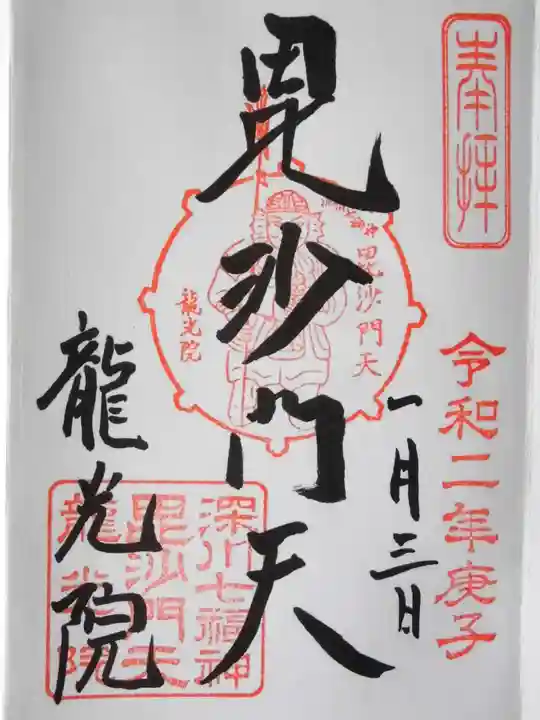 奉拝
令和二年庚子
一月三日
毘沙門天
毘沙門天
龍光院
龍光院
深川七福神
毘沙門天
龍光院